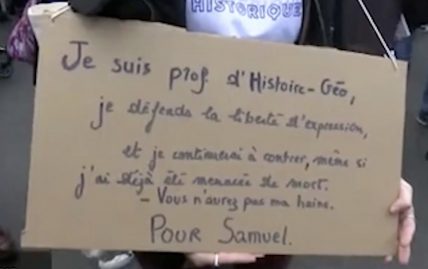 HISTORIQUE
Je suis prof d'Histoire-Géo,
je défends la liberté d'expression,
et je continuerai à contrer, même si
j'ai déjà été menacée de mort.
- Vous n'aurez pas ma haine.
POUR SAMUEL.